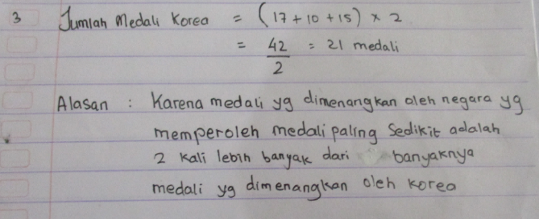 3 Jumlah Medali Korea = (17 + 10 + 15) × 2
= 42/2 = 21 medali
Alasan : Karena medali yg dimenangkan oleh negara yg
memperoleh medali paling sedikit adalah
2 kali lebih banyak dari banyaknya
medali yg dimenangkan oleh Korea